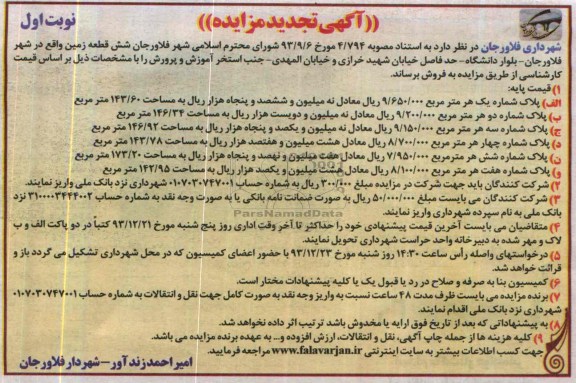 ((آگهی تجدید مزایده))
نوبت اول
شهرداری فلاورجان در نظر دارد به استناد مصوبه ۴/۷۹۴ مورخ ۹۳/۹/۶ شورای محترم اسلامی شهر فلاورجان شش قطعه زمین واقع در شهر
فلاورجان- بلوار دانشگاه- حد فاصل خیابان شهید خرازی و خیابان المهدی- جنب استخر آموزش و پرورش را با مشخصات ذیل بر اساس قیمت
کارشناسی از طریق مزایده به فروش برساند.
۱) قیمت پایه:
الف) پلاک شماره یک هر متر مربع ۹/۶۵۰/۰۰۰ ریال معادل نه میلیون و ششصد و پنجاه هزار ریال به مساحت ۱۴۳/۶۰ متر مربع
ب) پلاک شماره دو هر متر مربع ۹/۲۰۰/۰۰۰ ریال معادل نه میلیون و دویست هزار ریال به مساحت ۱۴۶/۳۴ متر مربع
ج) پلاک شماره سه هر متر مربع ۹/۱۵۰/۰۰۰ ریال معادل نه میلیون و یکصد و پنجاه هزار ریال به مساحت ۱۴۶/۹۲ متر مربع
د) پلاک شماره چهار هر متر مربع ۸/۷۰۰/۰۰۰ ریال معادل هشت میلیون و هفتصد هزار ریال به مساحت ۱۴۳/۷۸ متر مربع
ن) پلاک شماره شش هر متر مربع ۷/۹۵۰/۰۰۰ ریال معادل هفت میلیون و نهصد و پنجاه هزار ریال به مساحت ۱۷۳/۲۰ متر مربع
م) پلاک شماره هفت هر متر مربع ۸/۱۰۰/۰۰۰ ریال معادل هشت میلیون و یکصد هزار ریال به مساحت ۱۴۲/۹۵ متر مربع
۲) شرکت کنندگان باید جهت شرکت در مزایده مبلغ ۳۰۰/۰۰۰ ریال به شماره حساب ۰۱۰۷۰۳۰۷۴۷۰۰۱ شهرداری نزد بانک ملی واریز نمایند.
۳) شرکت کنندگان می بایست مبلغ ۵۰/۰۰۰/۰۰۰ ریال به صورت ضمانت نامه بانکی یا به صورت وجه نقد به شماره حساب ۳۱۰۰۰۰۳۴۴۴۰۰۲ نزد
بانک ملی به نام سپرده شهرداری واریز نمایند.
ParsNamadData
۴) متقاضیان می بایست آخرین قیمت پیشنهادی خود را حداکثر تا آخر وقت اداری روز پنج شنبه مورخ ۹۳/۱۲/۲۱ کتباً در دو پاکت الف و ب
لاک و مهر شده به دبیرخانه واحد حراست شهرداری تحویل نمایند.
۵) درخواستهای واصله رأس ساعت ۱۴:۳۰ روز شنبه مورخ ۹۳/۱۲/۲۳ با حضور اعضای کمیسیون که در محل شهرداری تشکیل می گردد باز و
قرائت خواهد شد.
۶) کمیسیون بنا به صرفه و صلاح در رد یا قبول یک یا کلیه پیشنهادات مختار است.
۷) برنده مزایده می بایست ظرف مدت ۴۸ ساعت نسبت به واریز وجه نقد به صورت کامل جهت نقل و انتقالات به شماره حساب ۰۱۰۷۰۳۰۷۴۷۰۰۱
شهرداری نزد بانک ملی اقدام نمایند.
۸) به پیشنهاداتی که بعد از تاریخ فوق ارایه یا مخدوش باشد ترتیب اثر داده نخواهد شد.
۹) کلیه هزینه ها از جمله چاپ آگهی، نقل و انتقالات، ارزش افزوده و... به عهده برنده مزایده می باشد.
جهت کسب اطلاعات بیشتر به سایت اینترنتی www.falavarjan.ir مراجعه فرمایید.
امیر احمد زندآور- شهردار فلاورجان